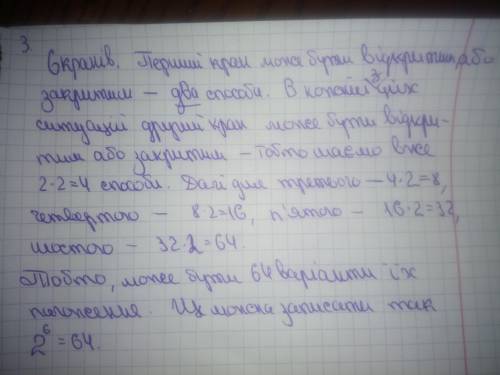 3.
6 кранів. Перший кран може бути відкритим, або
закритим — два способи. В кожній з цих
ситуацій другий кран може бути відкри-
тим або закритим – тобто маємо вже
2·2=4 способи. Далі для третього – 4·2=8,
четвертого – 8·2=16, п'ятого – 16·2=32,
шостого – 32·2=64.
Тобто, може бути 64 варіанти їх
положення. Це можна записати так
2⁶=64.